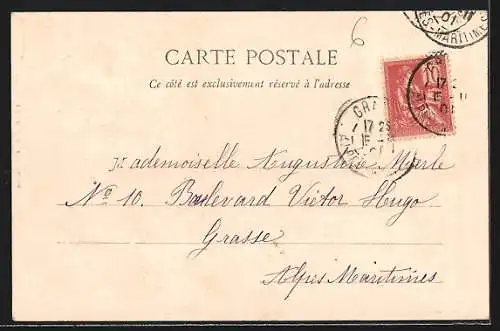 6
CARTE POSTALE
Ce côté est exclusivement réservé à l'adresse
Mademoiselle Augustine Merle
No 10. Boulevard Victor Hugo
Grasse
Alpes Maritimes